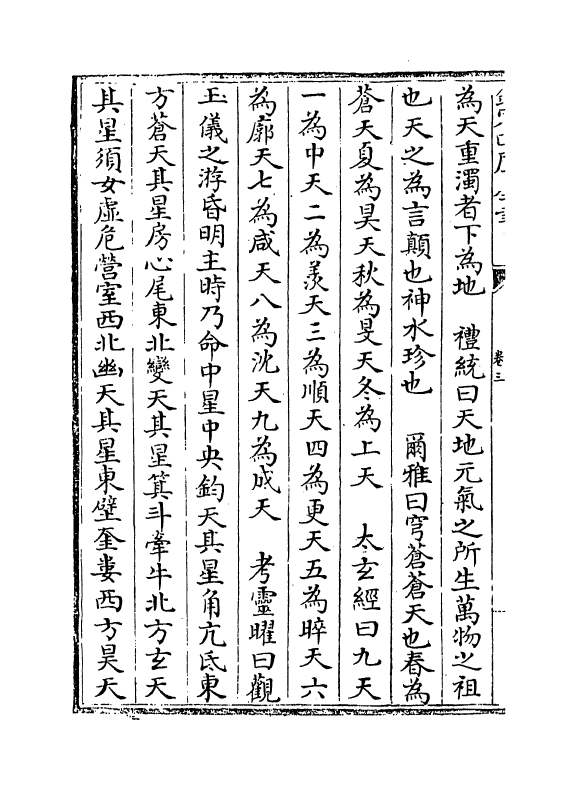 為天重濁者下為地　禮統曰天地元氣之所生萬物之祖
也天之為言顛也神水珍也　爾雅曰穹蒼蒼天也春為
蒼天夏為昊天秋為旻天冬為上天　太玄經曰九天
一為中天二為羨天三為順天四為更天五為睟天六
為廓天七為咸天八為沈天九為成天　考靈曜曰觀
玉儀之游昏明主時乃命中星中央鈞天其星角亢氐東
方蒼天其星房心尾東北變天其星箕斗牽牛北方玄天
其星須女虛危營室西北幽天其星東壁奎婁西方昊天
卷三